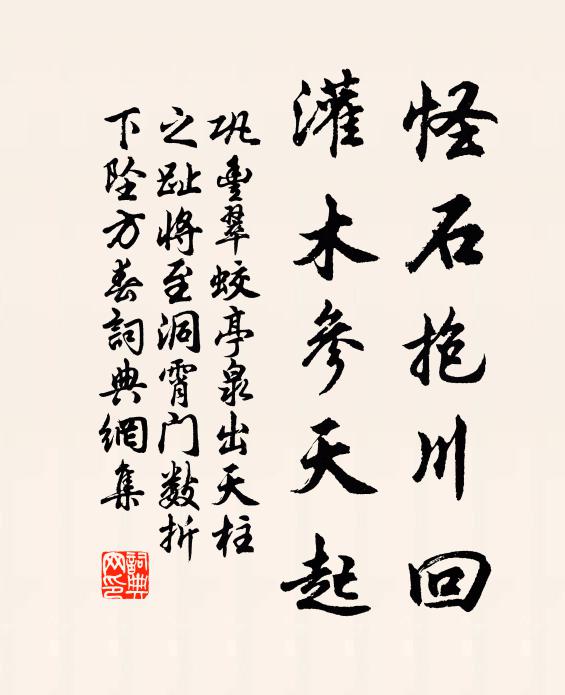 怪石抱川回
灌木參天起
巩豊翠蛟亭泉出天柱
之趾將至洞霄门數折
下墜方春詞典網集
詞典网印